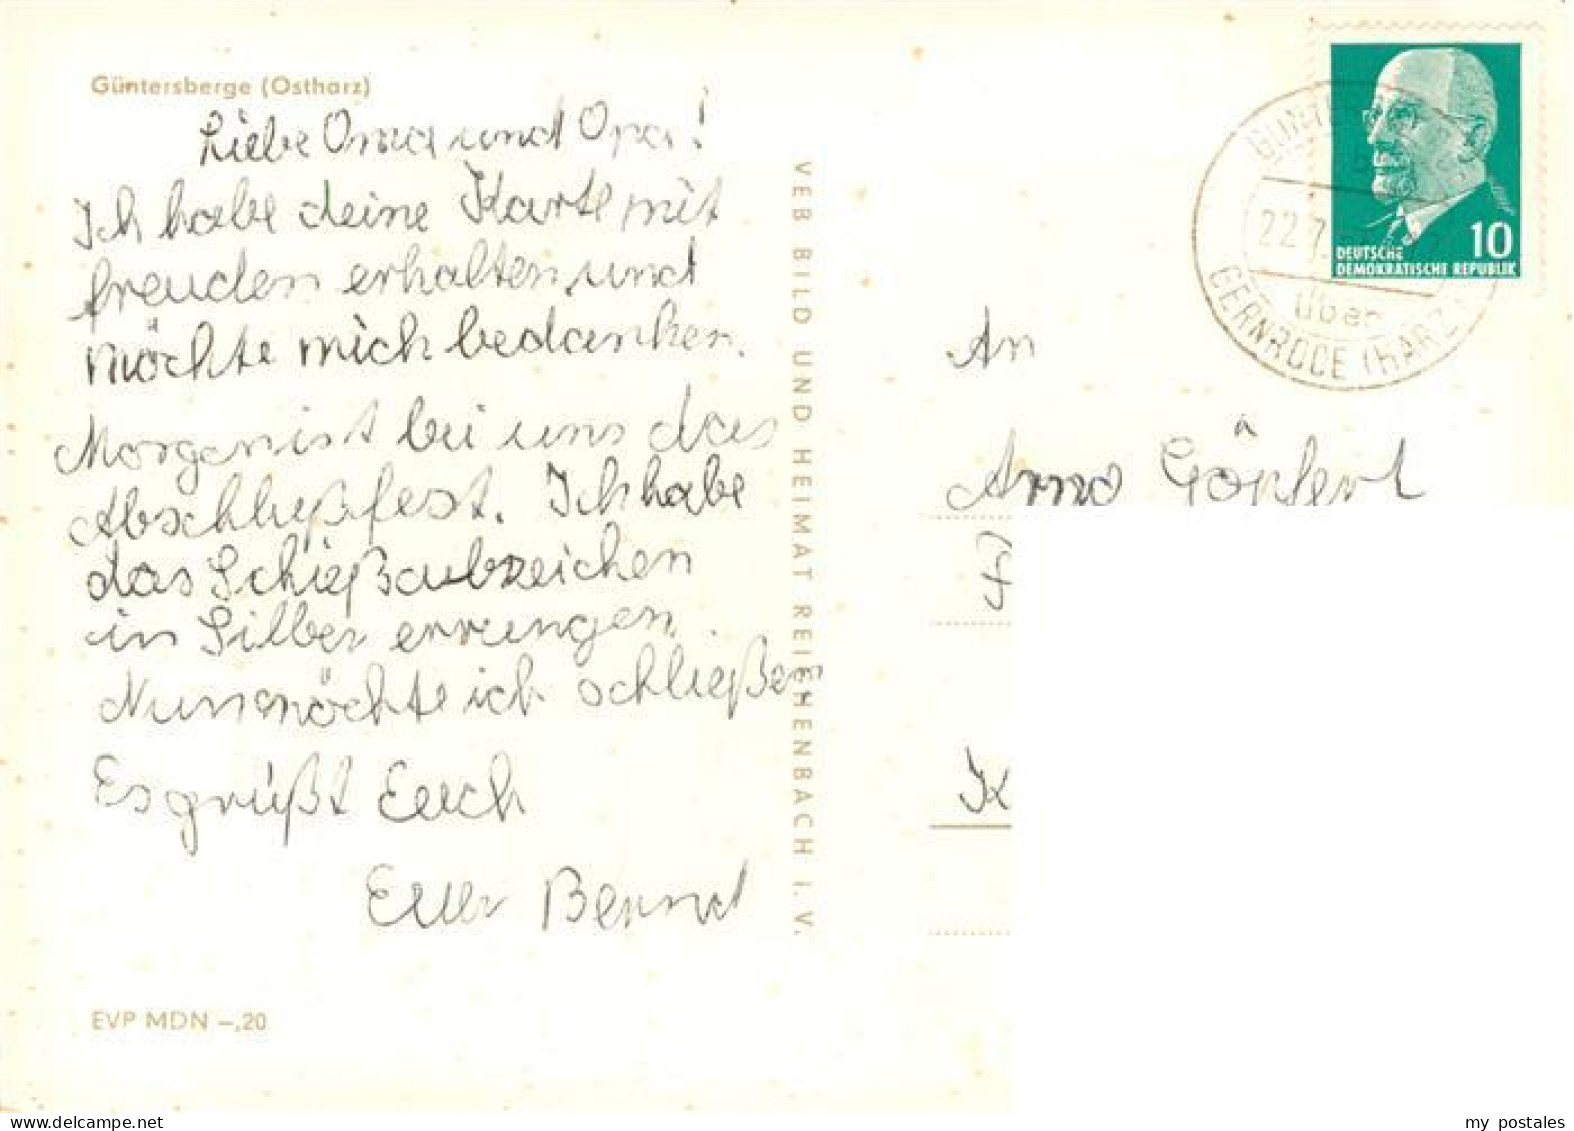 Güntersberge (Ostharz)
Liebe Oma und Opa!
Ich habe deine Karte mit
freuden erhalten, und
möchte mich bedanken.
Morgen ist bei uns das
Abschlußfest. Ich habe
das Schießabzeichen
in Silber errungen.
Nun möchte ich schließen
Es grüßt Euch
Euer Bernd
EVP MDN –,20
VEB BILD UND HEIMAT REICHENBACH I. V.
10
DEUTSCHE
DEMOKRATISCHE REPUBLIK
22.7.
über
GERNRODE (HARZ
An
Arno Göpfert
my postales